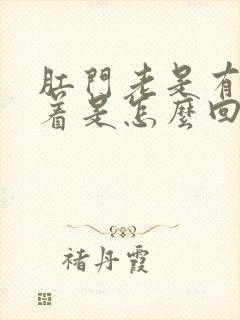 肛門老是有
着是怎麼回
褚丹霞